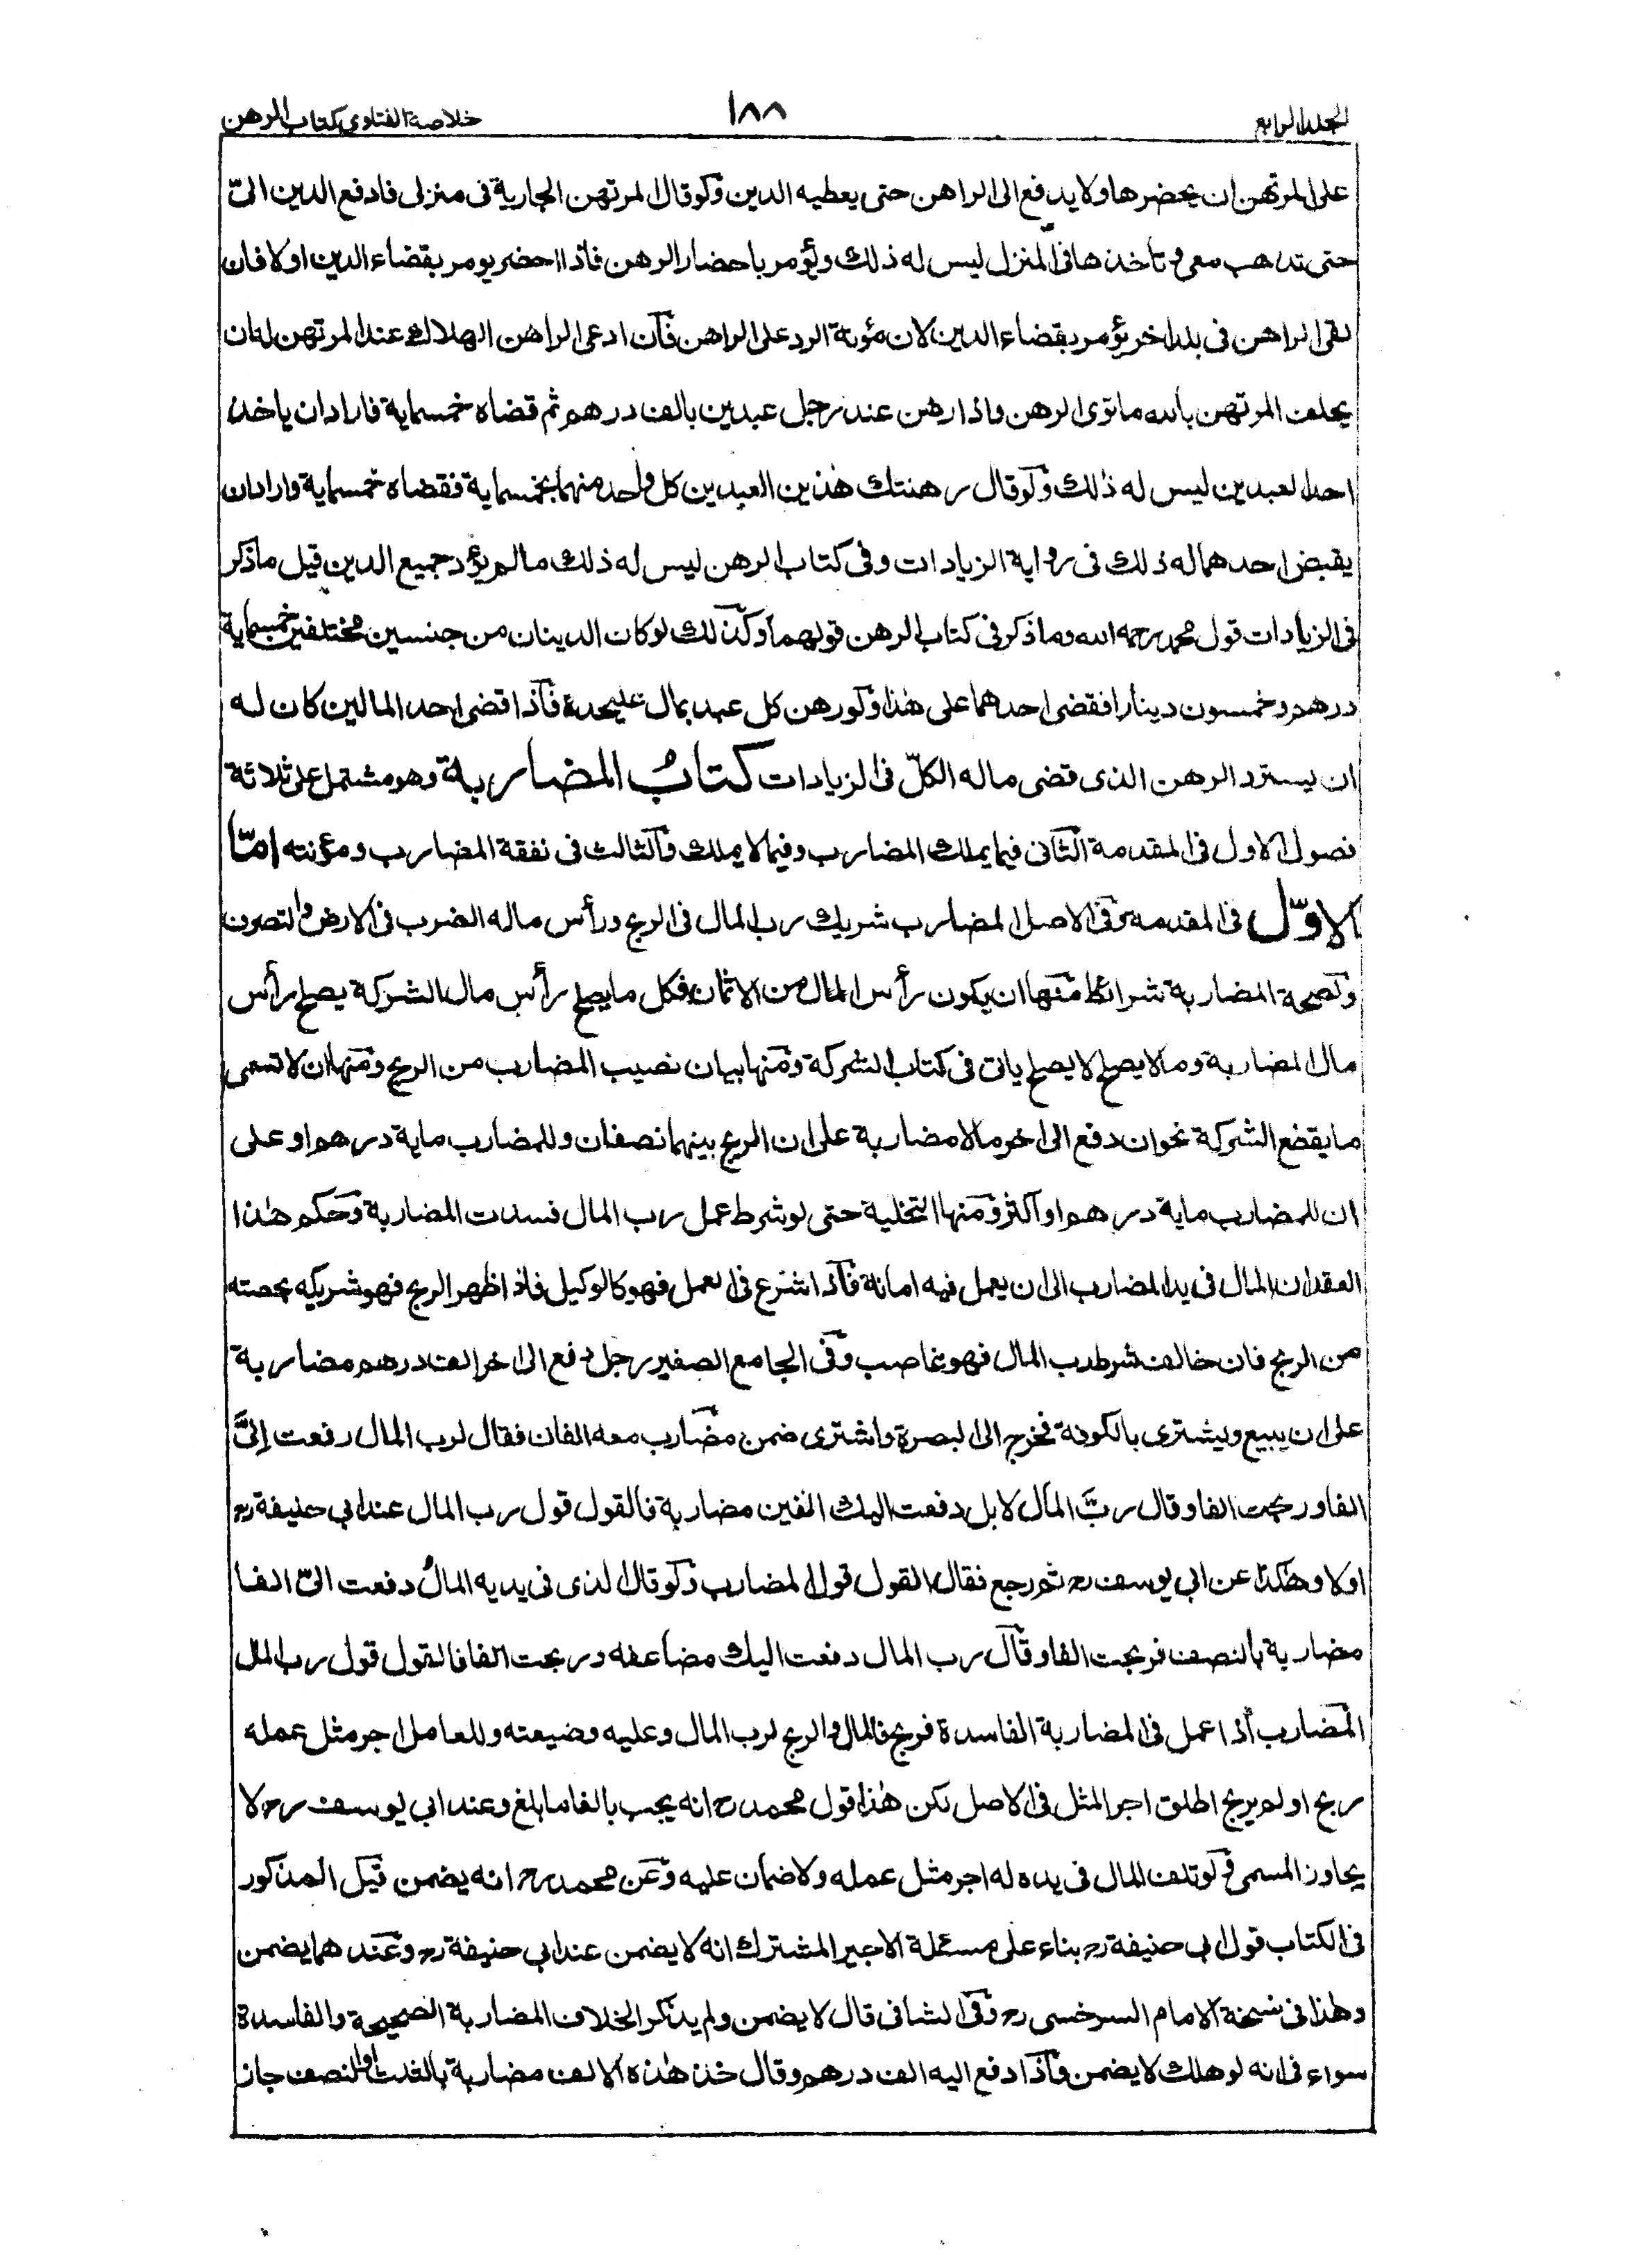 الجلد الرابع ١٨٨ خلاصة الفتاوى كتاب الرهن
على المرتهن ان يحضرها ولا يدفع الى الراهن حتى يعطيه الدين ولو قال المرتهن الجارية فى منزلى فادفع الدين الىّ
حتى تذهب معى وتأخذها فى المنزل ليس له ذلك ويؤمر باحضار الرهن فاذا احضر يومر بقضاء الدين اولا فان
لقى الراهن فى بلد اخر يؤمر بقضاء الدين لان مؤنة الرد على الراهن فان ادعى الراهن الهلاك عند المرتهن له ان
يحلف المرتهن بالله ما توى الرهن واذا رهن عند رجل عبدين بالف درهم ثم قضاه خمسماية فاراد ان ياخذ
احد العبدين ليس له ذلك ولو قال رهنتك هذين العبدين كل واحد منهما بخمسماية فقضاه خمسماية واراد ان
يقبض احدهما له ذلك فى رواية الزيادات وفى كتاب الرهن ليس له ذلك ما لم يؤد جميع الدين قيل ما ذكر
فى الزيادات قول محمد رحمه الله وما ذكر فى كتاب الرهن قولهما وكذلك لو كان الدينان من جنسين مختلفين خمسماية
درهم وخمسون دينارا فقضى احدهما على هذا ولو رهن كل عبد بمال عليحدة فاذا قضى احد المالين كان له
ان يسترد الرهن الذى قضى ماله الكلّ فى الزيادات كتابُ المضاربة وهو مشتمل على ثلاثة
فصول الاول فى المقدمة الثانى فيما يملك المضارب وفيما لا يملك والثالث فى نفقة المضارب ومؤنته امّا
الاوّل فى المقدمة وفى الاصل المضارب شريك رب المال فى الربح ورأس ماله الضرب فى الارض والتصرف
ولصحة المضاربة شرائط منها ان يكون رأس المال من الاثمان فكل ما يصلح رأس مال الشركة يصلح رأس
مال المضاربة وما لا يصلح لا يصلح ياتى فى كتاب الشركة ومنها بيان نصيب المضارب من الربح ومنها ان لا تسمى
ما يقطع الشركة نحو ان دفع الى اخر مالا مضاربة على ان الربح بينهما نصفان وللمضارب ماية درهم او على
ان للمضارب ماية درهم او اكثر ومنها التخلية حتى لو شرط عمل رب المال فسدت المضاربة وحكم هذا
العقد ان المال فى يد المضارب الى ان يعمل فيه امانة فاذا شرع فى العمل فهو كالوكيل فاذا ظهر الربح فهو شريكه بحصته
من الربح فان خالف شرط رب المال فهو غاصب وفى الجامع الصغير رجل دفع الى اخر الف درهم مضاربة
على ان يبيع ويشترى بالكوفة فخرج الى البصرة واشترى ضمن مضارب معه الفان فقال لرب المال دفعت إلىَّ
الفا وربحت الفا وقال ربَّ المال لا بل دفعت اليك الفين مضاربة فالقول قول رب المال عند ابي حنيفة رح
اولا وهكذا عن ابي يوسف رح ثم رجع فقال القول قول المضارب ولو قال الذى فى يديه المالُ دفعت الىّ الفا
مضاربة بالنصف فربحت الفا وقال رب المال دفعت اليك مضاعفه وربحت الفا فالقول قول رب المال
المضارب اذا عمل فى المضاربة الفاسدة فربح فالمال والربح لرب المال وعليه وضيعته وللعامل اجر مثل عمله
ربح او لم يربح اطلق اجر المثل فى الاصل لكن هذا قول محمد رح انه يجب بالغا ما بلغ وعند ابى يوسف رح لا
يجاوز المسمى ولو تلف المال فى يده له اجر مثل عمله ولا ضمان عليه وعن محمد رح انه يضمن قيل المذكور
فى الكتاب قول ابى حنيفة رح بناء على مسئلة الاجير المشترك انه لا يضمن عند ابي حنيفة رح وعندهما يضمن
وهذا فى نسخة الامام السرخسى رح وفى الشافى قال لا يضمن ولم يذكر الخلاف المضاربة الصحيحة والفاسدة
سواء فى انه لو هلك لا يضمن واذا دفع اليه الف درهم وقال خذ هذه الالف مضاربة بالثلث او بالنصف جاز